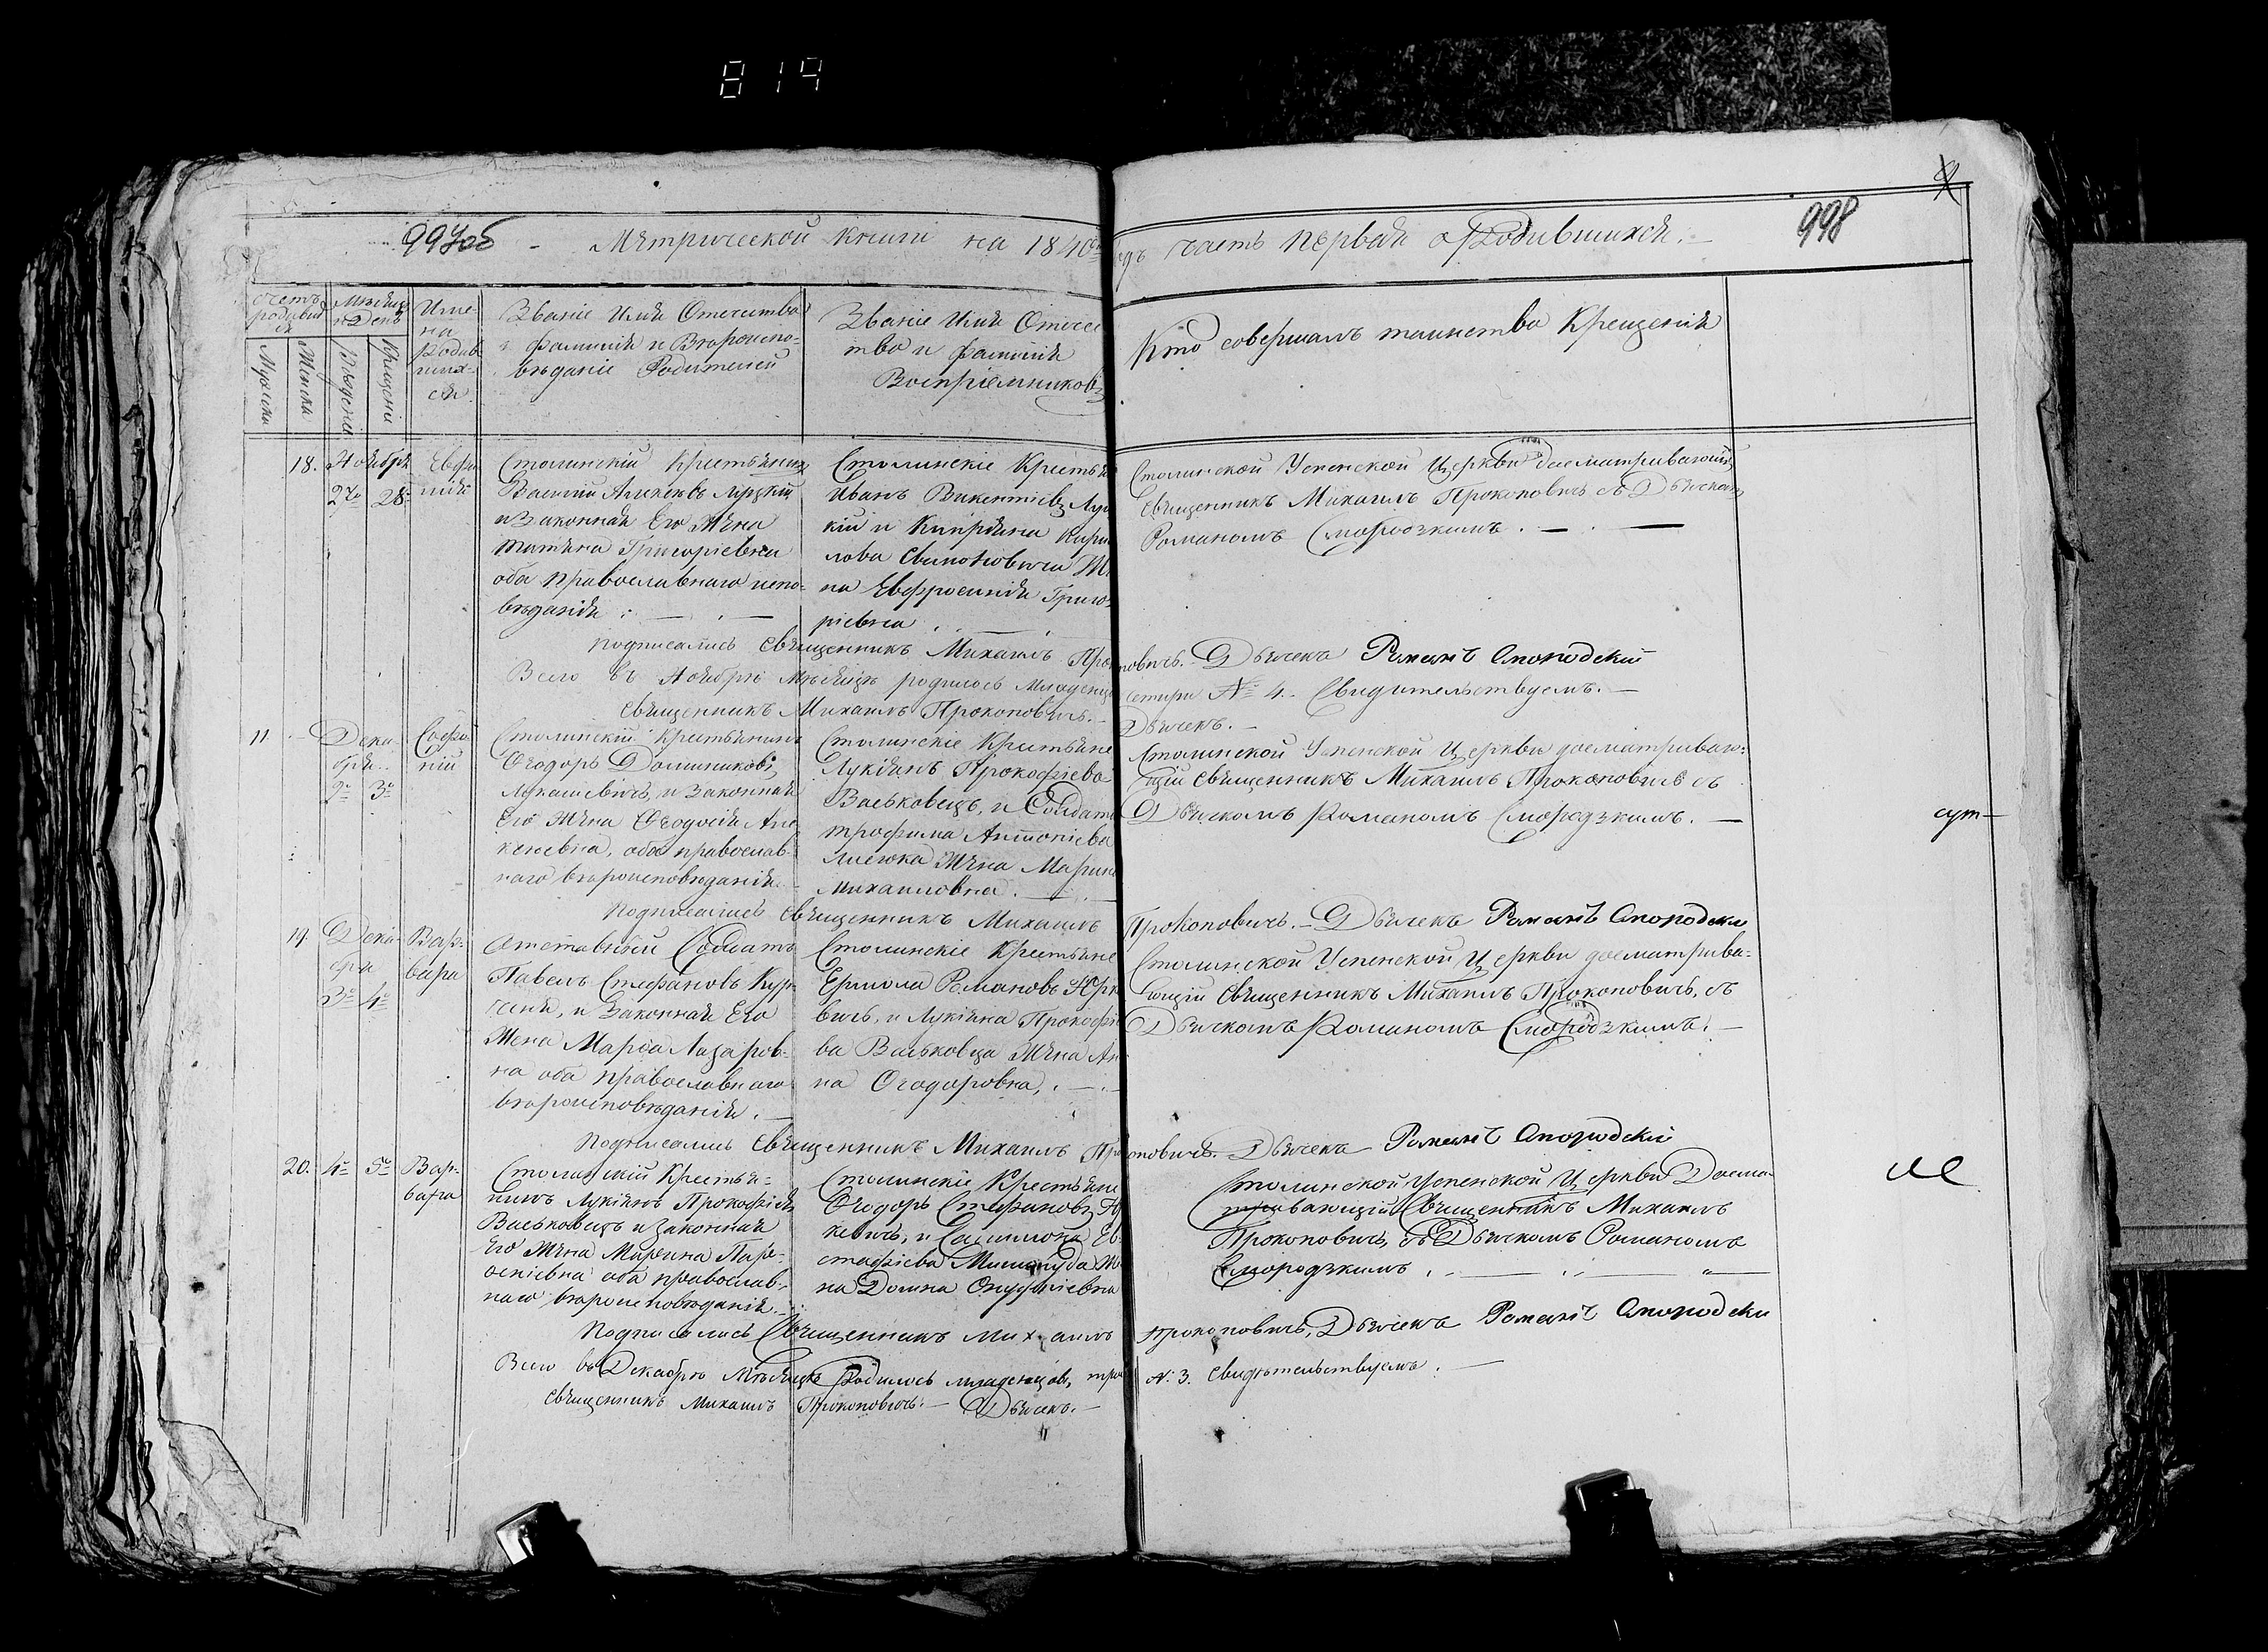 819
997об - Метрической книги на 1840й
годъ часть первая о Родившихся. - 998
Счетъ родивших
ся
Мужеска
Женска
Мѣсяцъ
и День
Рожденія
Крещенія
Име
на
Родив
шихъ-
ся.
Званіе Имя Отечество
и Фамилія и Вѣроиспо-
вѣданіе Родителей
Званіе Имя Отече
тво и Фамилія
Воспріемниковъ
Кто совершалъ таинство Крещенія
18. Ноября
27го 28.
Евфи
мія
Столинскій Крестьянинъ
Василій Алексѣевъ Луцкій
и Законная Его Жена
Татіяна Григоріевна
оба православнаго испо-
вѣданія. -
Столинскіе Крестьяне
Иванъ Викентіевъ Луц
кій и Кипріяна Кири
лова
на Евфросинія Григо-
ріевна.
Столинской Успенской Церкви досматривающій
Священникъ Михаилъ Прокоповичъ съ Дьячкомъ
Романомъ Смородзкимъ. -
подписались Священникъ Михаилъ Прокоповичъ. - Дьячекъ Романъ Смородскій
Всего въ Ноябрѣ Мѣсяцѣ родилось младенцовъ четыри № 4. Свидительствуемъ. -
Священникъ Михаилъ Прокоповичъ. - Дьячекъ. -
11. Дека
бря
2го 3го
Софо
ній
Столинскій Крестьянинъ
Ѳеодоръ Доминиковъ
Лукашевичъ, и Законная
Его Жена Ѳеодосія Але
ксеевна, оба православ-
наго вѣроисповѣданія. -
Столинскіе Крестьяне
Лукіянъ Прокофіевъ
Васьковецъ, и Солдата
трофима Антоніева
Жена Марина
Михаиловна. -
Столинской Успенской Церкви досматриваю-
щій Священникъ Михаилъ Прокоповичъ съ
Дьячкомъ Романомъ Смородзкимъ. -
сут-
подписались Священникъ Михаилъ Прокоповичъ. - Дьячекъ Романъ Смородски
19. Дека
бря
3го 4го
Вар-
вара
Отставный Солдатъ
Павелъ Стефановъ
и Законная Его
Жена Марѳа Лазаров-
на оба православнаго
вѣроисповѣданія. -
Столинскіе Крестьяне
Ермола Романовъ
вичъ, и Лукіяна Прокофіе
ва Васьковца Жена Ан
на Ѳеодоровна. -
Столинской Успенской Церкви досматрива-
ющій Священникъ Михаилъ Прокоповичъ, съ
Дьячкомъ Романомъ Смородзкимъ. -
Подписались Священникъ Михаилъ Прокоповичъ. Дьячекъ Романъ Смородскій
20. 4го 5го
Вар-
вара
Столинскій Крестья-
нинъ Лукіянъ Прокофіевъ
Васьковецъ и Законная
Его Жена Марина Пар-
оеніевна оба православ-
наго вѣроисповѣданія. -
Столинскіе Крестьяне
Ѳеодоръ Стефановъ
кевичъ, и Самуила Ев
стафіева
на Домна Онуфріевна
Столинской Успенской Церкви Досма-
тривающій Священникъ Михаилъ
Прокоповичъ, съ Дьячкомъ Романомъ
Смородзкимъ. -
Подписались Священникъ Михаилъ Прокоповичъ, Дьячекъ Романъ Смородски
Всего въ Декабрѣ Мѣсяцѣ Родилось младенцовъ, три № 3. Свидѣтельствуемъ. -
Священникъ Михаилъ Прокоповичъ. - Дьячекъ. -